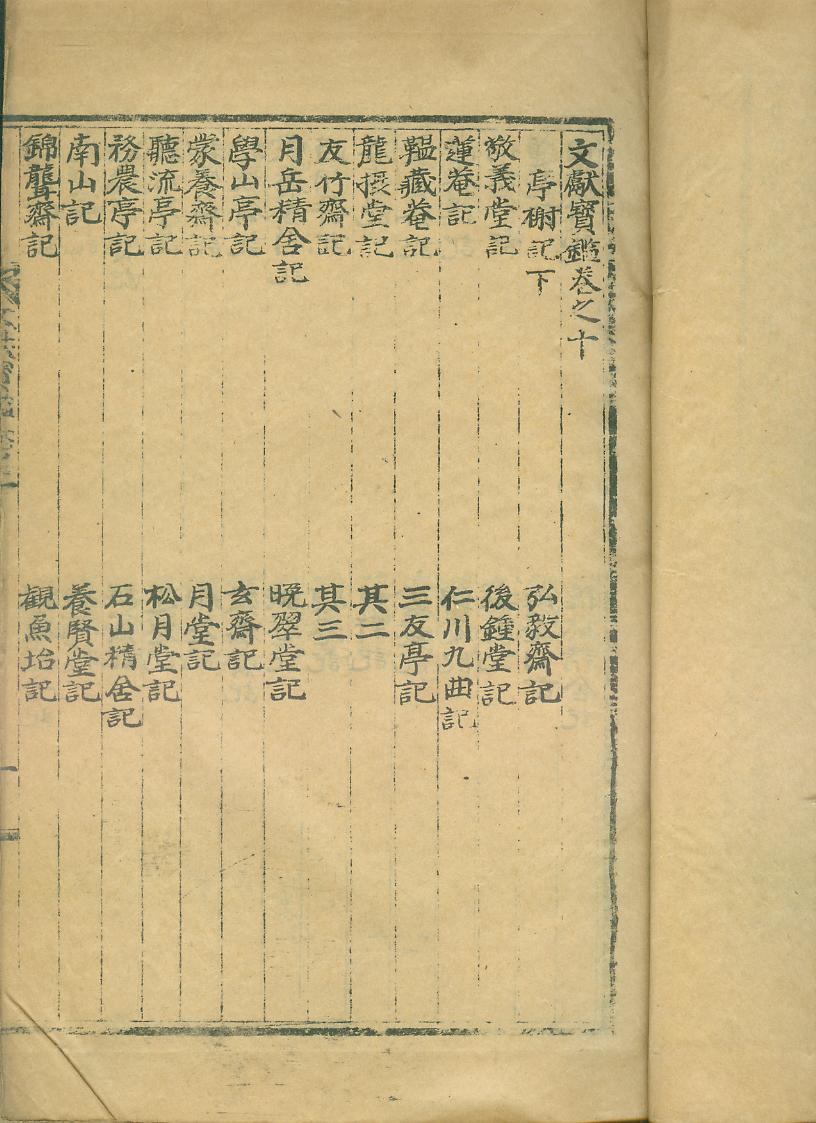 文獻寶鑑卷之十
亭榭記下
弘毅齋記
敬義堂記
後鍾堂記
蓮菴記
仁川九曲記
韞藏菴記
三友亭記
龍擾堂記
其二
友竹齋記
其三
月岳精舍記
晩翠堂記
學山亭記
玄齋記
蒙養齋記
月堂記
聽流亭記
松月堂記
務農亭記
石山精舍記
南山記
養賢堂記
錦聾齋記
觀魚坮記